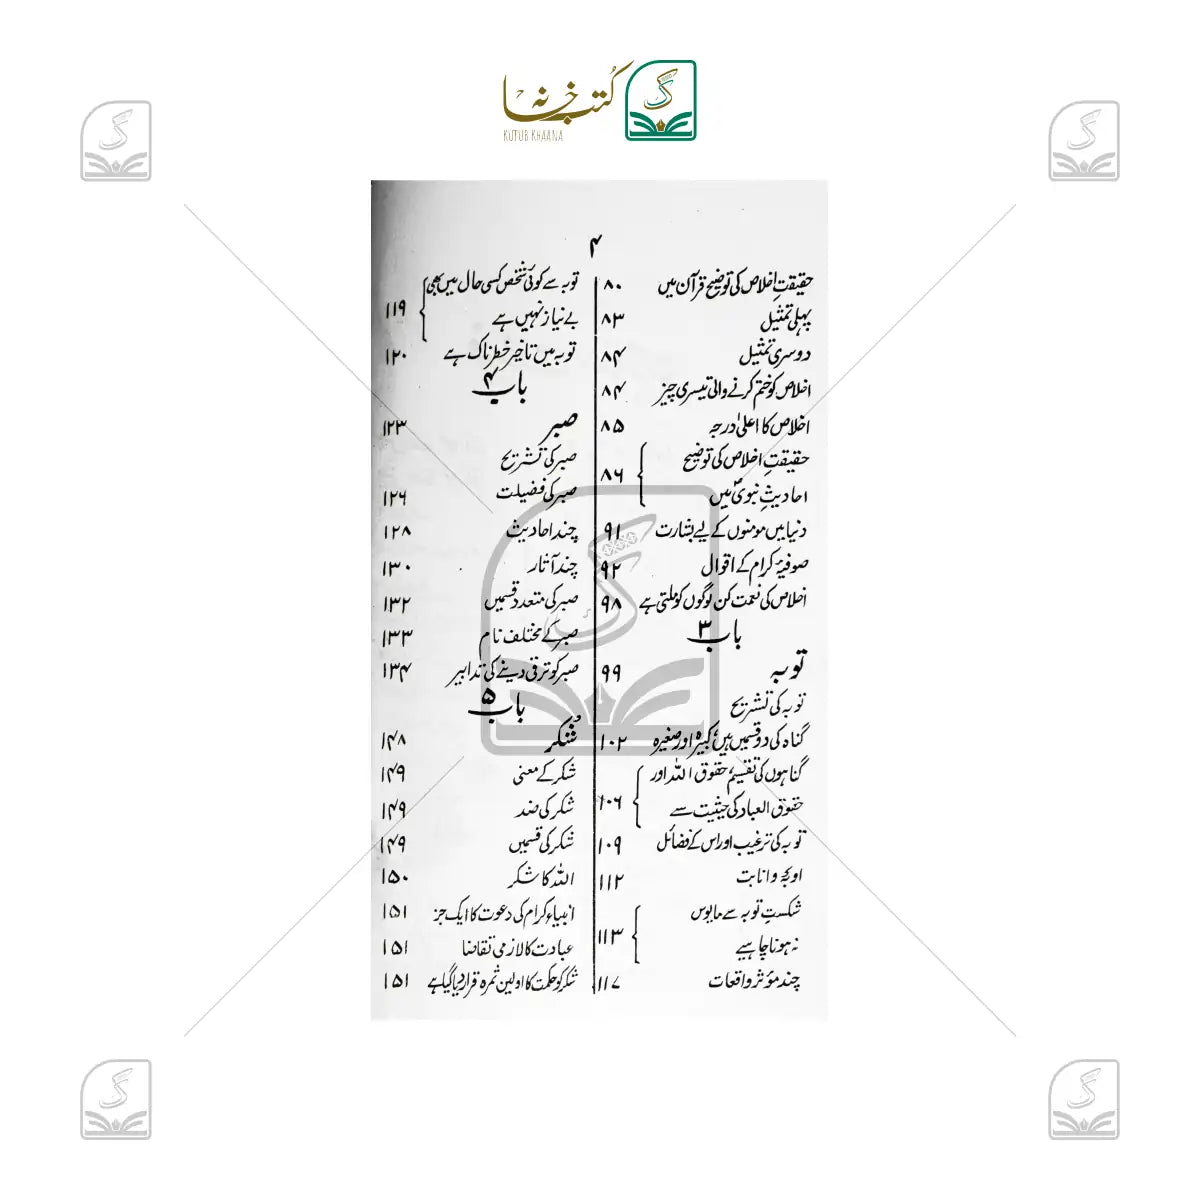 کتب خانہ
KUTUB KHAANA
۴
حقیقتِ اخلاص کی توضیح قرآن میں ۸۰
پہلی تمثیل ۸۳
دوسری تمثیل ۸۴
اخلاص کو ختم کرنے والی تیسری چیز ۸۴
اخلاص کا اعلیٰ درجہ ۸۵
حقیقتِ اخلاص کی توضیح
احادیثِ نبویؐ میں ۸۶
دنیا میں مومنوں کے لیے بشارت ۹۱
صوفیۂ کرام کے اقوال ۹۲
اخلاص کی نعمت کن لوگوں کو ملتی ہے ۹۸
باب ۳
توبہ ۹۹
توبہ کی تشریح
گناہ کی دو قسمیں ہیں؛ کبیرہ اور صغیرہ ۱۰۲
گناہوں کی تقسیم، حقوق اللہ اور
حقوق العباد کی حیثیت سے ۱۰۶
توبہ کی ترغیب اور اس کے فضائل ۱۰۹
اوبہ و انابت ۱۱۲
شکستِ توبہ سے مایوس
نہ ہونا چاہیے ۱۱۳
چند مؤثر واقعات ۱۱۷
توبہ سے کوئی شخص کسی حال میں بھی
بے نیاز نہیں ہے ۱۱۹
توبہ میں تاخیر خطرناک ہے ۱۲۰
باب ۴
صبر ۱۲۳
صبر کی تشریح
صبر کی فضیلت ۱۲۶
چند احادیث ۱۲۸
چند آثار ۱۳۰
صبر کی متعدد قسمیں ۱۳۲
صبر کے مختلف نام ۱۳۳
صبر کو ترقی دینے کی تدابیر ۱۳۴
باب ۵
شُکر ۱۴۸
شکر کے معنی ۱۴۹
شکر کی ضد ۱۴۹
شکر کی قسمیں ۱۴۹
اللہ کا شکر ۱۵۰
انبیاء کرام کی دعوت کا ایک جز ۱۵۱
عبادت کا لازمی تقاضا ۱۵۱
شکر کو حکمت کا اولین ثمرہ قرار دیا گیا ہے ۱۵۱